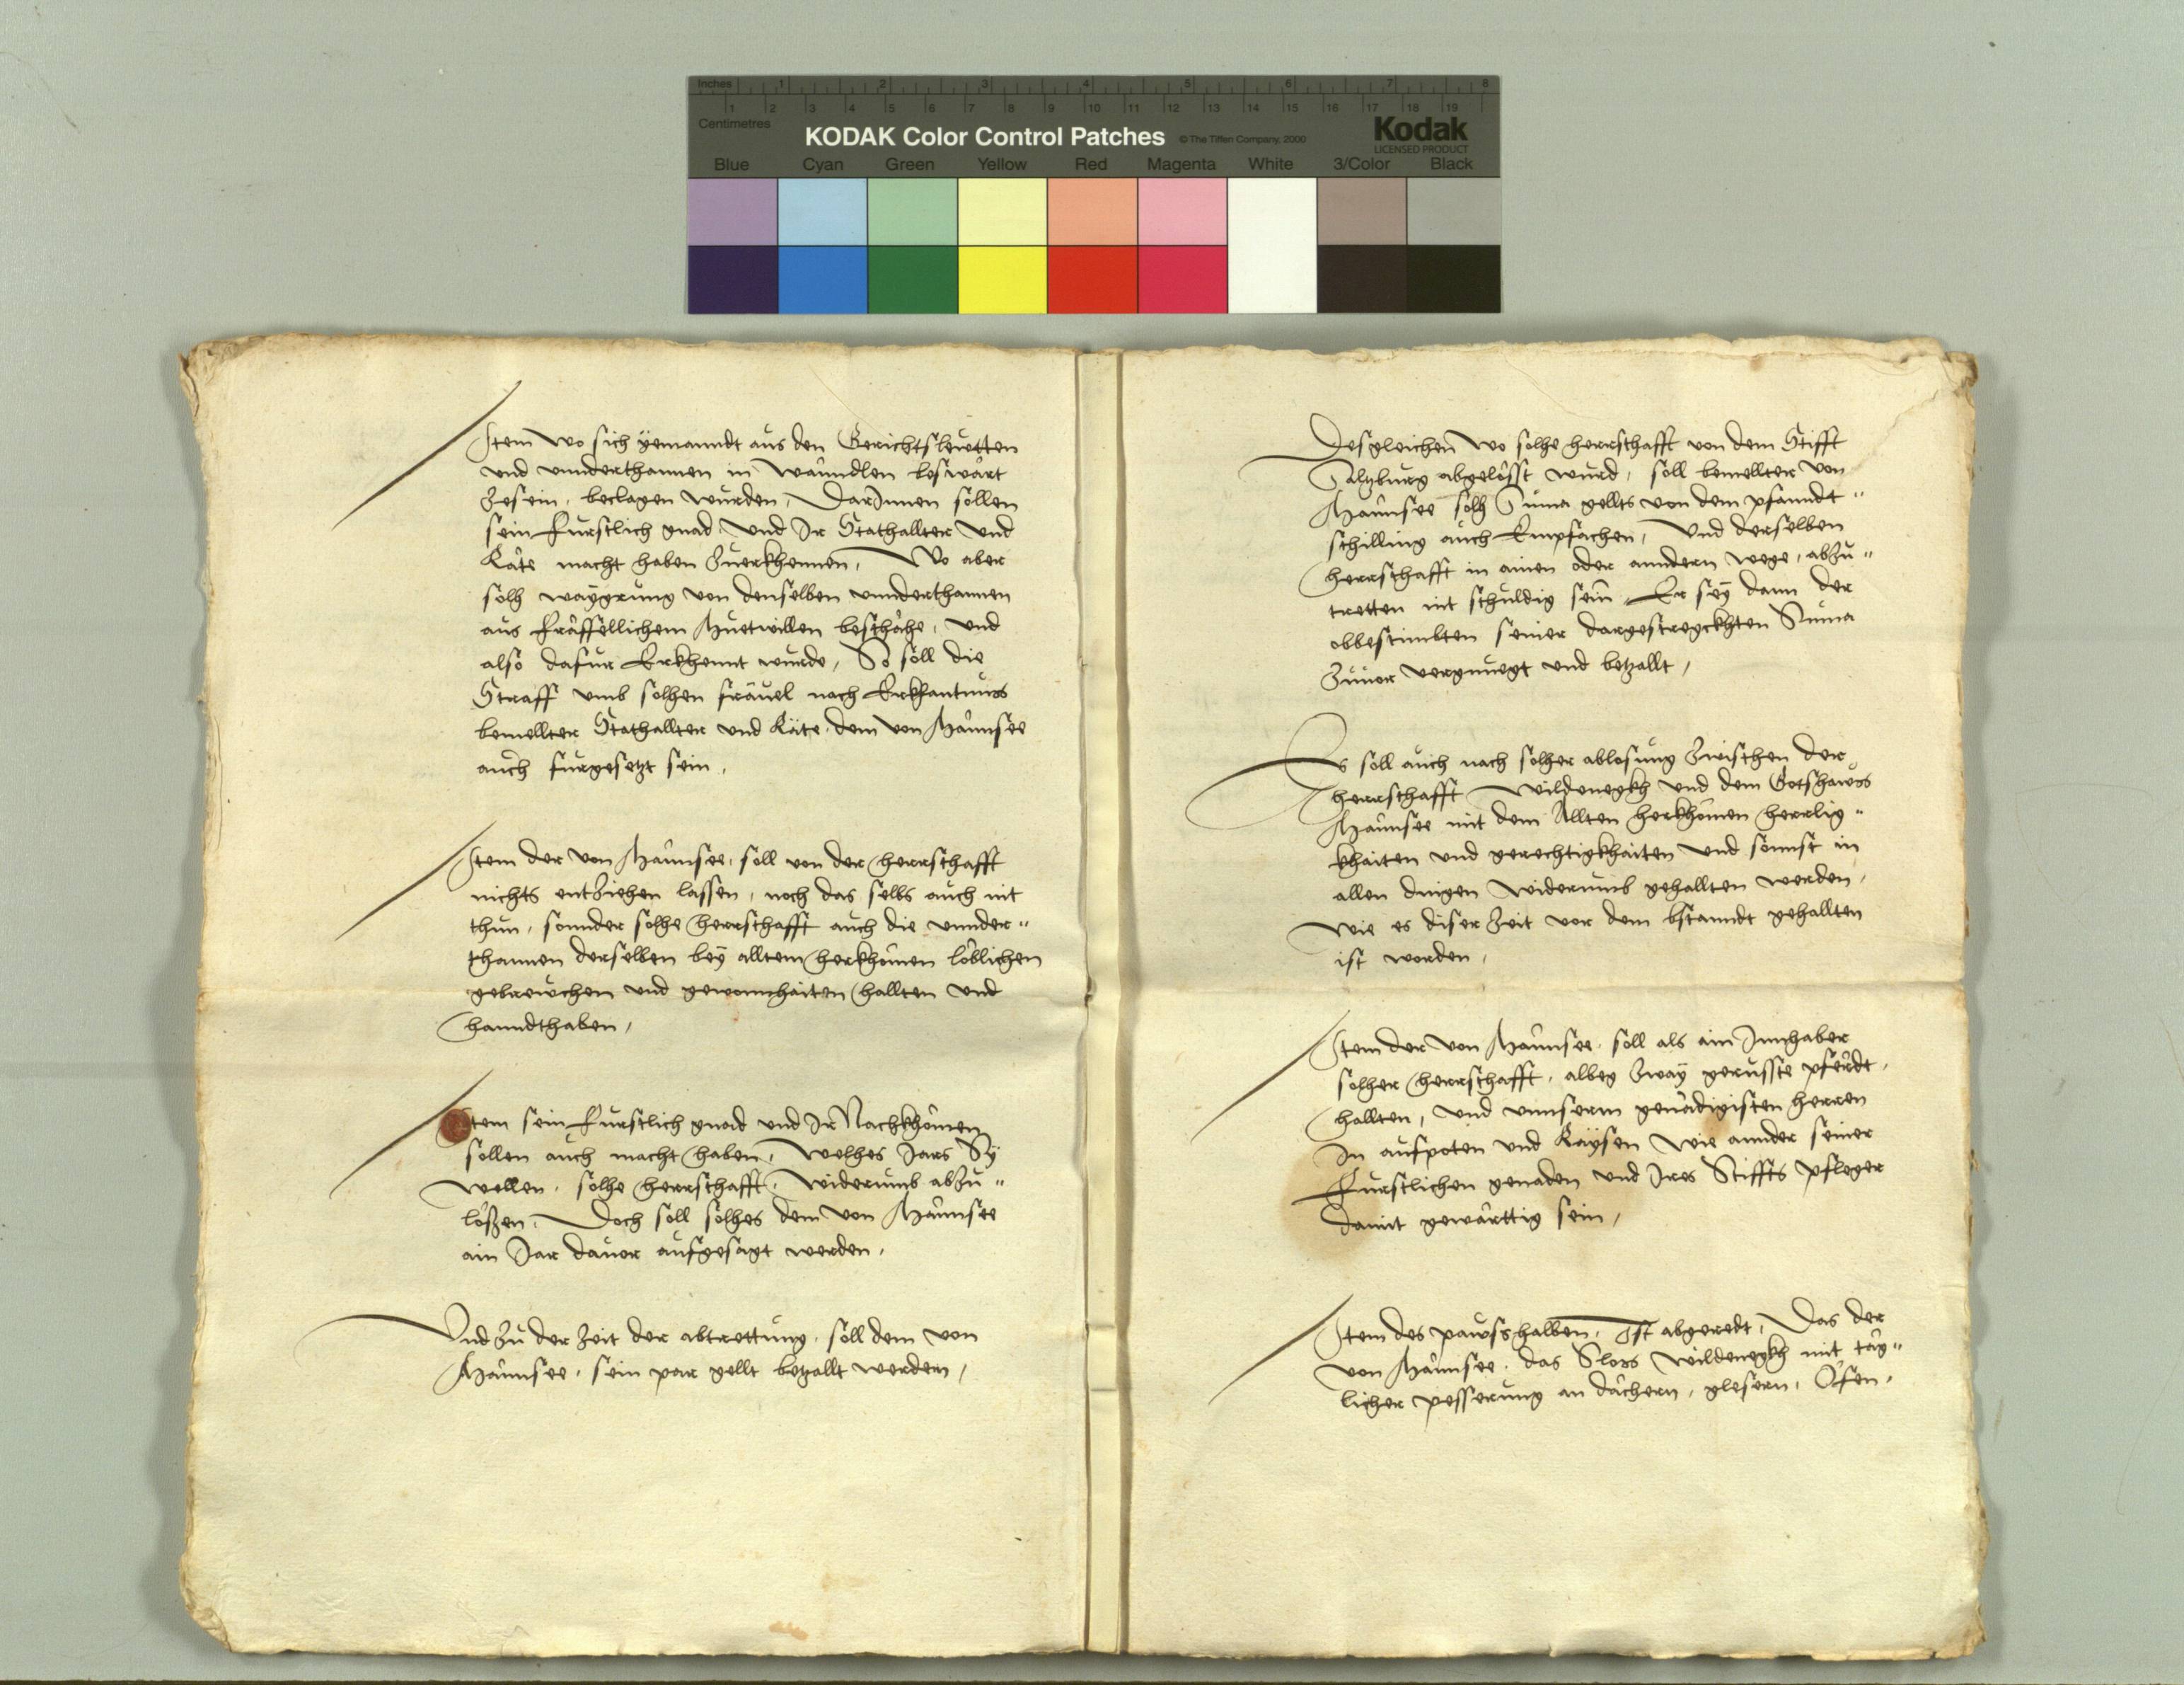 Inches 1 2 3 4 5 6 7 8
1 2 3 4 5 6 7 8 9 10 11 12 13 14 15 16 17 18 19
Centimetres
KODAK Color Control Patches © The Tiffen Company, 2000 Kodak
LICENSED PRODUCT
Blue Cyan Green Yellow Red Magenta White 3/Color Black
Item wo sich yemanndt aus den Gerichtslewtten
und unnderthannen in wanndlen beswärt
zesein, beclagen wurden, Darinnen sollen
sein Furstlich gnad und Ir Stathallter und
Räte macht haben zuerkhennen, Wo aber
solh waygrung von denselben unnderthannen
aus fräffellichem Muetwillen beschähe, und
also dafur Erkhennt wurde, So soll die
Straff umb solhen frävel nach Erkhantnuss
bemellter Stathallter und Räte dem von Mannsee
auch furgesetzt sein,
Item der von Mannsee, soll von der herrschafft
nichts entziehen lassen, noch das selbs auch nit
thun, sonnder solhe herrschafft auch die unnder"
thannen derselben bey alltem herkhomen löblichen
gebrewchen und gewonnhaiten hallten und
hanndthaben,
Item sein Furstlich gnad und Ir Nachkhomen
sollen auch macht haben, welhes Jars Sy
wellen, solhe herrschafft, widerumb abzu"
lößen, Doch soll solhes dem von Mannsee
ain Jar davor aufgesagt werden,
Und zu der Zeit der abtrettung, soll dem von
Mannsee, sein par gellt betzallt werden,
Desgleichen wo solhe herrschafft von dem Stifft
Saltzburg abgelösst wurd, soll bemellter von
Mannsee solh Suma gellts von dem pfanndt"
schilling auch Empfachen, Und derselben
herrschafft in ainen oder anndern wege, abzu"
tretten nit schuldig sein Er sey dann der
obbestimbten seiner dargestregckhten Suma
Zuuor vergnuegt und betzallt,
Es soll auch nach solher ablosung zwischen der
herrschafft Wildenegkh und dem Gotshawss
Mannsee mit dem Allten herkhomen herrlig"
khaiten und gerechtigkhaiten und sonnst in
allen dingen widerumb gehallten werden,
wie es diser Zeit vor dem bstanndt gehallten
ist worden,
Item der von Mannsee, soll als ain Innhaber
solher herrschafft, albeg Zway gerusste pferdt,
hallten, und unnserm genädigisten herren
In aufpoten und Raysen wie annder seiner
Furstlichen genaden und Ires Stiffts pfleger
damit gewärttig sein,
Item des pawss halben, Ist abgeredt, Das der
von Mannsee, das Sloss Wildenegkh mit täg"
licher pesserung an dächern, glesern, Öfen,